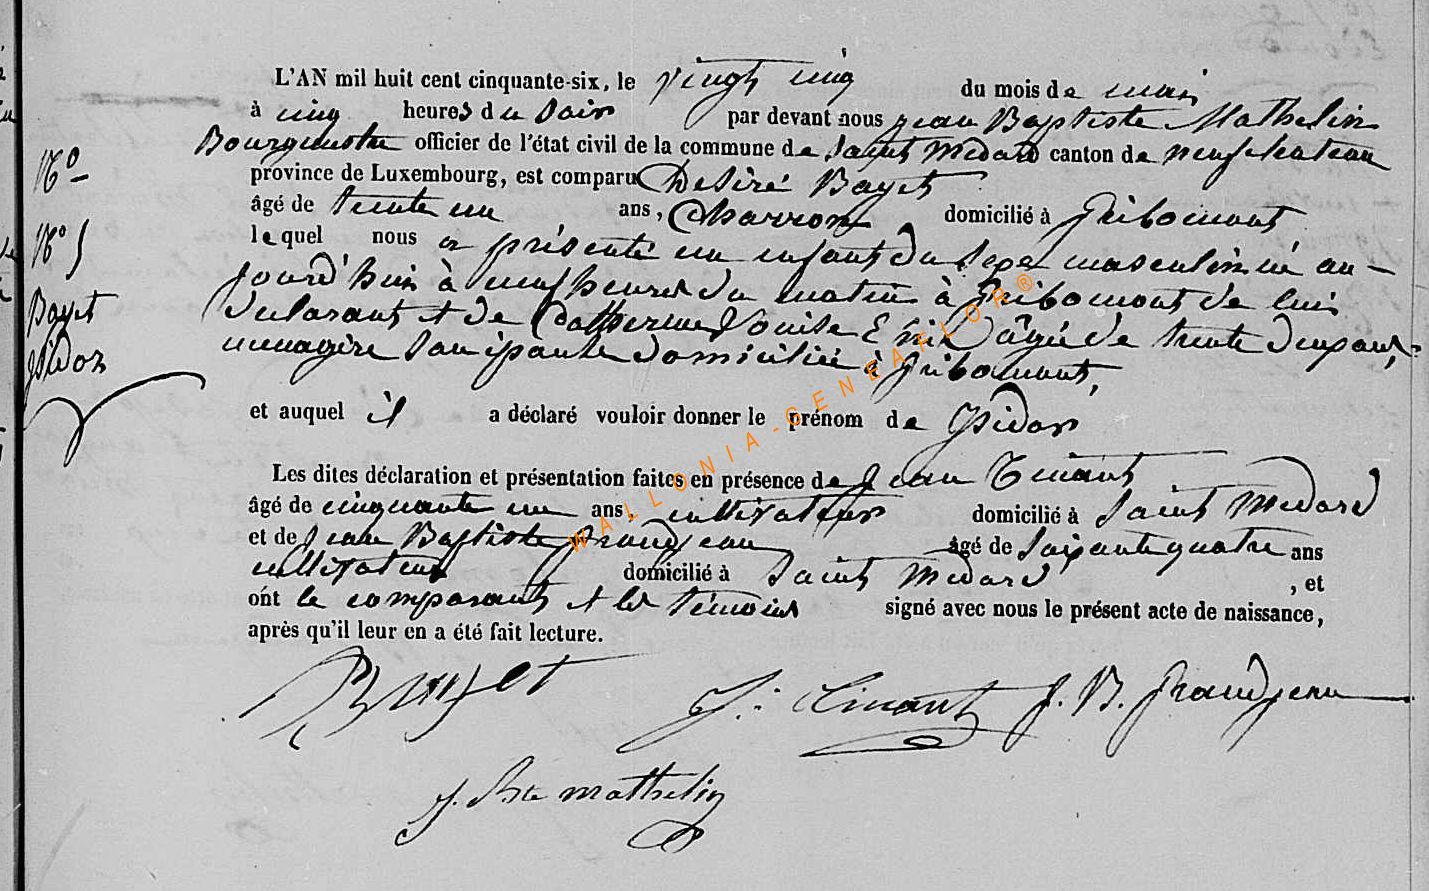 L'AN mil huit cent cinquante-six, le vingt cinq du mois de mai
à cinq heures du Soir par devant nous Jean Baptiste Mathelin
Bourgmestre officier de l'état civil de la commune de Saint Médard canton de neufchateau
province de Luxembourg, est comparu Désiré Bayet
âgé de trente un ans, Charron domicilié à Gribomont
lequel nous a présenté un enfant du Sexe masculin né au-
jourd'hui à neuf heures du matin à Gribomont de lui
declarant et de Catherine Louise âgée de trente deux ans,
menagère domiciliée à Gribomont,
et auquel il a déclaré vouloir donner le prénom de Isidor
Les dites déclaration et présentation faites en présence de Jean Tinant
âgé de cinquante un ans, cultivateur domicilié à Saint Médard
et de Jean Baptiste Grandjean âgé de Soixante quatre ans
cultivateur domicilié à Saint Médard, et
ont le comparant et les témoins signé avec nous le présent acte de naissance,
après qu'il leur en a été fait lecture.
Bayet J. Tinant J. B. Grandjean
J. Bte mathelin
N°
N° 5
Bayet
Isidor
WALLONIA-GENEAFLOR®